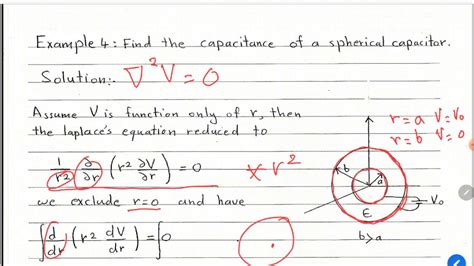 Example 4: Find the capacitance of a spherical capacitor.
Solution:- ∇²V = 0
Assume V is function only of r, then
the laplace's equation reduced to
r = a V = V₀
r = b V = 0
1/r² ∂/∂r (r² ∂V/∂r) = 0 × r²
we exclude r=0 and have
∫ d/dr (r² dV/dr) = ∫ 0
b a
ε
V₀
b>a